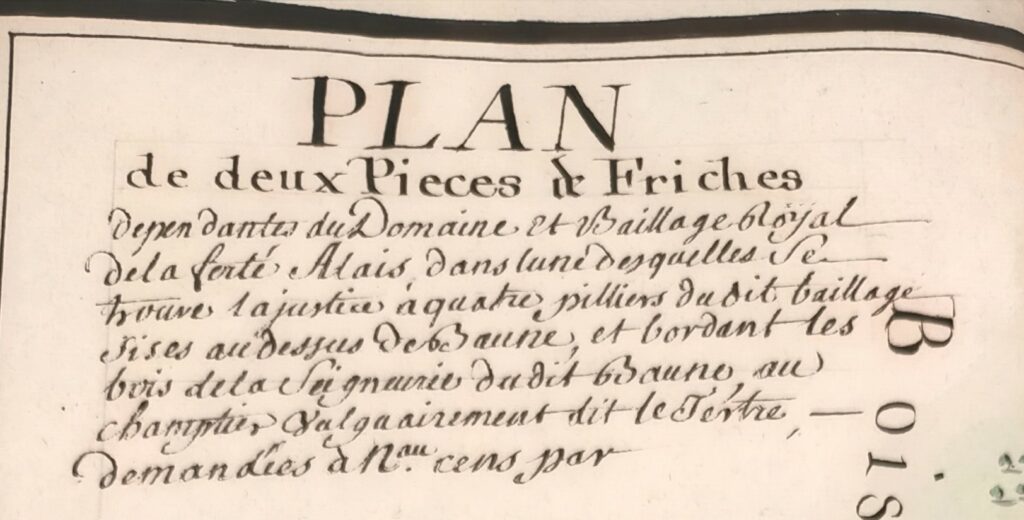 PLAN
de deux Pieces de Friches
dependantes du Domaine et Baillage Roÿal
de la ferté Alais, dans lune desquelles Se
trouve la justice à quatre pilliers du dit baillage
sises au dessus de Baune, et bordant les
bois de la Seigneurie du dit Baune, au
champtier Vulguairement dit le Tertre,
demandées à N.au cens par
BOIS